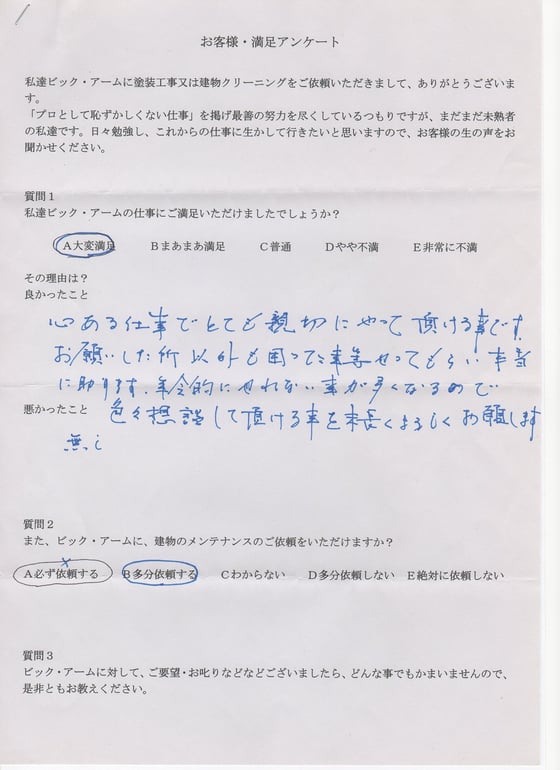 お客様・満足アンケート
私達ビック・アームに塗装工事又は建物クリーニングをご依頼いただきまして、ありがとうございま
す。
「プロとして恥ずかしくない仕事」を掲げ最善の努力を尽くしているつもりですが、まだまだ未熟者
の私達です。日々勉強し、これからの仕事に生かして行きたいと思いますので、お客様の生の声をお
聞かせください。
質問１
私達ビック・アームの仕事にご満足いただけましたでしょうか？
Ａ大変満足 Ｂまあまあ満足 Ｃ普通 Ｄやや不満 Ｅ非常に不満
その理由は？
良かったこと
心ある仕事でとても親切にやって頂ける事です。
お願いした所以外も困ってる事等やってもらい本当
に助ります。年令的にやれない事が多くなるので
悪かったこと 色々想談して頂ける事を末長くよろしくお願します
無し
質問２
また、ビック・アームに、建物のメンテナンスのご依頼をいただけますか？
Ａ必ず依頼する Ｂ多分依頼する Ｃわからない Ｄ多分依頼しない Ｅ絶対に依頼しない
質問３
ビック・アームに対して、ご要望・お叱りなどなどございましたら、どんな事でもかまいませんので、
是非ともお教えください。